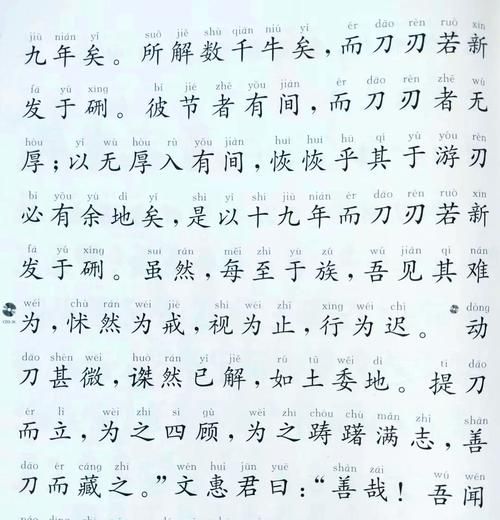 jiǔ nián yǐ suǒ jiě shù qiān niú yǐ ér dāo rèn ruò xīn
九年矣。所解数千牛矣，而刀刃若新
fā yú xíng bǐ jié zhě yǒu jiàn ér dāo rèn zhě wú
发于硎。彼节者有间，而刀刃者无
hòu yǐ wú hòu rù yǒu jiàn huī huī hū qí yú yóu rèn
厚；以无厚入有间，恢恢乎其于游刃
bì yǒu yú dì yǐ shì yǐ shí jiǔ nián ér dāo rèn ruò xīn
必有余地矣，是以十九年而刀刃若新
fā yú xíng suī rán měi zhì yú zú wú jiàn qí nán
发于硎。虽然，每至于族，吾见其难
wéi chù rán wéi jiè shì wéi zhǐ xíng wéi chí dòng
为，怵然为戒，视为止，行为迟。动
dāo shèn wēi huò rán yǐ jiě rú tǔ wěi dì tí dāo
刀甚微，謋然已解，如土委地。提刀
ér lì wèi zhī sì gù wèi zhī chóu chú mǎn zhì shàn
而立，为之四顾，为之踌躇满志，善
dāo ér cáng zhī wén huì jūn yuē shàn zāi wú wén
刀而藏之。”文惠君曰：“善哉！吾闻